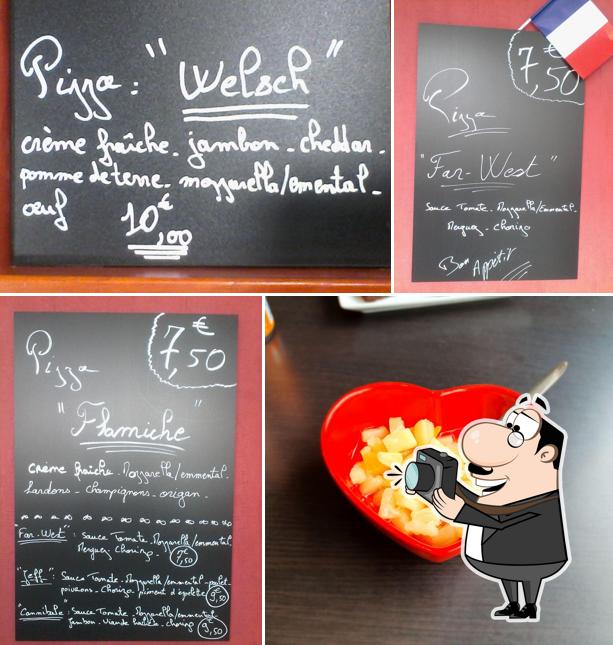 Pizza : "Welsch"
crème fraîche. jambon. cheddar.
pomme de terre. mozzarella/emental.
œuf
10€,00
7€,50
Pizza
"Far-West"
Sauce Tomate. Mozzarella/Emmental.
Merguez. Chorizo
Bon Appétit
7€,50
Pizza
"Flamiche"
crème fraîche. Mozzarella/emmental.
Lardons. champignons. origan.
"Far-West": sauce Tomate. Mozzarella/emmental.
Merguez. Chorizo. 7€,50
"Jeff": Sauce Tomate. Mozzarella/emmental. poulet.
poivrons. Chorizo piment d'espelette 9€,50
"Cannibale": sauce Tomate. Mozzarella/emmental
jambon. viande hachée. chorizo 9€,50